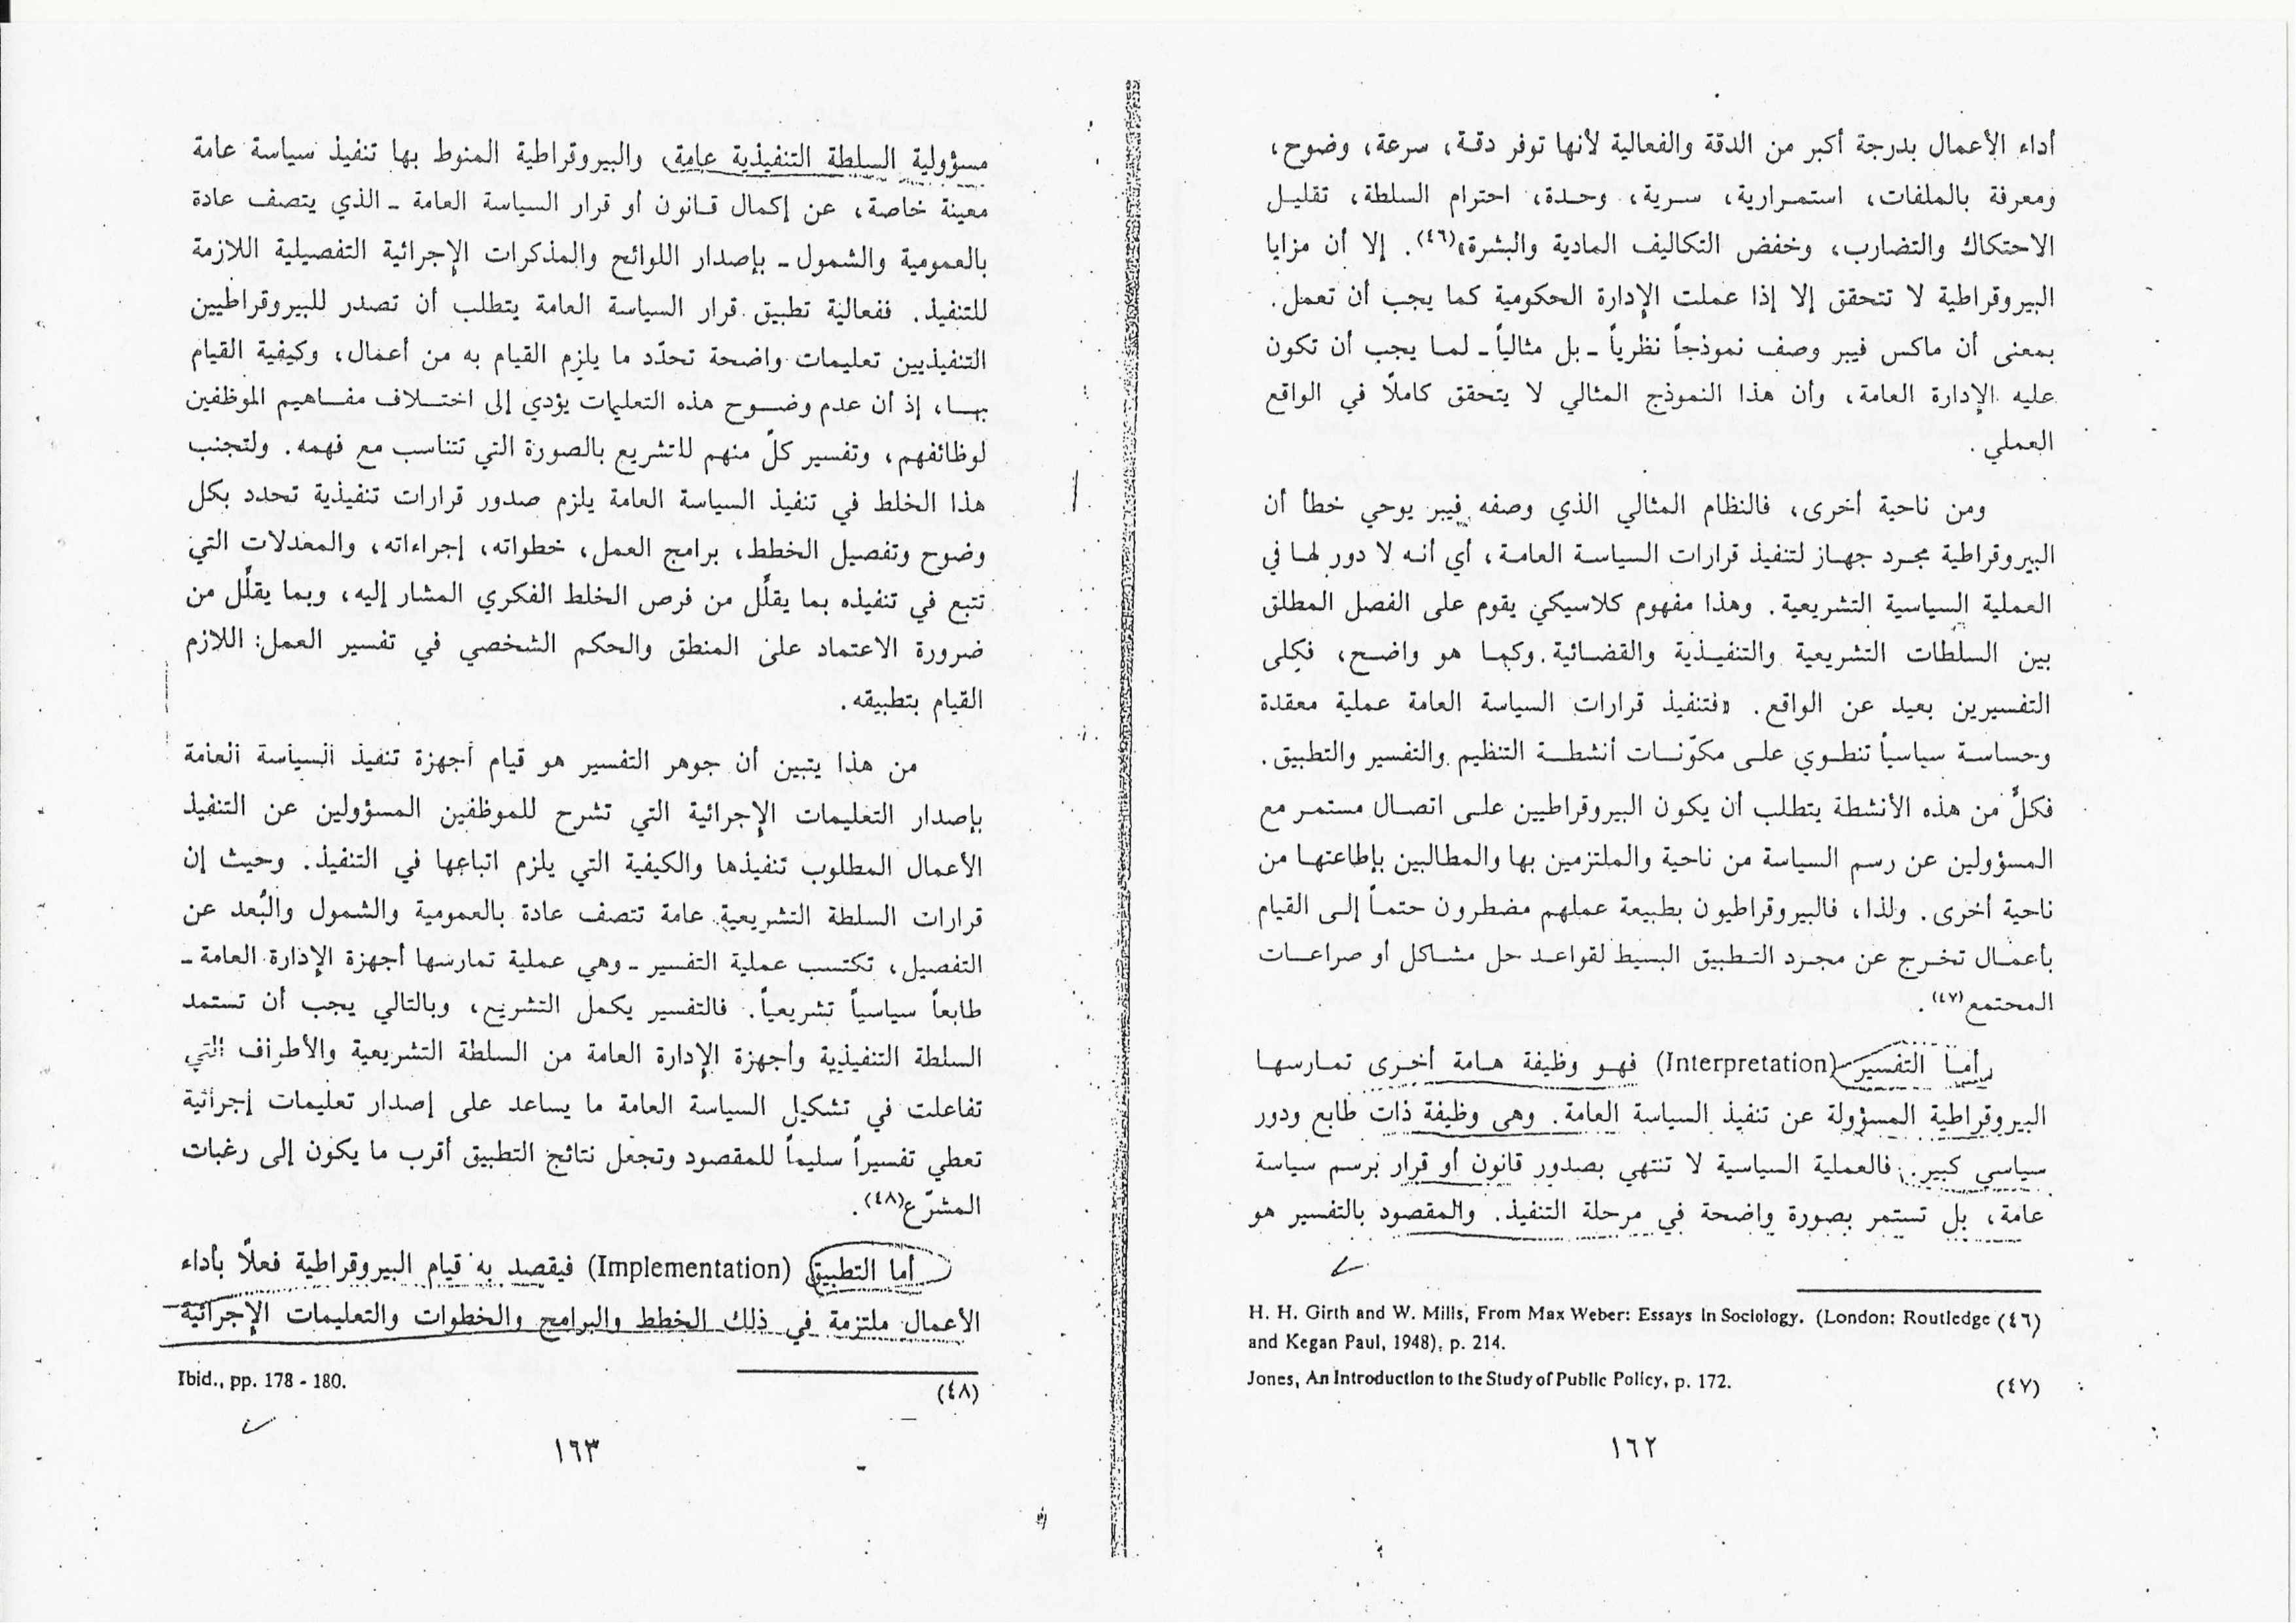 أداء الأعمال بدرجة أكبر من الدقة والفعالية لأنها توفر دقة، سرعة، وضوح،
ومعرفة بالملفات، استمرارية، سرية، وحدة، احترام السلطة، تقليل
الاحتكاك والتضارب، وخفض التكاليف المادية والبشرة»(٤٦). إلا أن مزايا
البيروقراطية لا تتحقق إلا إذا عملت الإدارة الحكومية كما يجب أن تعمل.
بمعنى أن ماكس فيبر وصف نموذجاً نظرياً ـ بل مثالياً ـ لما يجب أن تكون
عليه الإدارة العامة، وأن هذا النموذج المثالي لا يتحقق كاملاً في الواقع
العملي.
ومن ناحية أخرى، فالنظام المثالي الذي وصفه فيبر يوحي خطأ أن
البيروقراطية مجرد جهاز لتنفيذ قرارات السياسة العامة، أي أنه لا دور لها في
العملية السياسية التشريعية. وهذا مفهوم كلاسيكي يقوم على الفصل المطلق
بين السلطات التشريعية والتنفيذية والقضائية. وكما هو واضح، فكلى
التفسيرين بعيد عن الواقع. «فتنفيذ قرارات السياسة العامة عملية معقدة
وحساسة سياسياً تنطوي على مكوّنات أنشطة التنظيم والتفسير والتطبيق.
فكلٌ من هذه الأنشطة يتطلب أن يكون البيروقراطيين على اتصال مستمر مع
المسؤولين عن رسم السياسة من ناحية والملتزمين بها والمطالبين بإطاعتها من
ناحية أخرى. ولذا، فالبيروقراطيون بطبيعة عملهم مضطرون حتماً إلى القيام
بأعمال تخرج عن مجرد التطبيق البسيط لقواعد حل مشاكل أو صراعات
المجتمع(٤٧).
أما التفسير (Interpretation) فهو وظيفة هامة أخرى تمارسها
البيروقراطية المسؤولة عن تنفيذ السياسة العامة. وهي وظيفة ذات طابع ودور
سياسي كبير. فالعملية السياسية لا تنتهي بصدور قانون أو قرار برسم سياسة
عامة، بل تستمر بصورة واضحة في مرحلة التنفيذ. والمقصود بالتفسير هو
(٤٦) H. H. Girth and W. Mills, From Max Weber: Essays in Sociology. (London: Routledge
and Kegan Paul, 1948), p. 214.
(٤٧) Jones, An Introduction to the Study of Public Policy, p. 172.
١٦٢
مسؤولية السلطة التنفيذية عامة، والبيروقراطية المنوط بها تنفيذ سياسة عامة
معينة خاصة، عن إكمال قانون أو قرار السياسة العامة ـ الذي يتصف عادة
بالعمومية والشمول ـ بإصدار اللوائح والمذكرات الإجرائية التفصيلية اللازمة
للتنفيذ. ففعالية تطبيق قرار السياسة العامة يتطلب أن تصدر للبيروقراطيين
التنفيذيين تعليمات واضحة تحدّد ما يلزم القيام به من أعمال، وكيفية القيام
بها، إذ أن عدم وضوح هذه التعليمات يؤدي إلى اختلاف مفاهيم الموظفين
لوظائفهم، وتفسير كلّ منهم للتشريع بالصورة التي تتناسب مع فهمه. ولتجنب
هذا الخلط في تنفيذ السياسة العامة يلزم صدور قرارات تنفيذية تحدد بكل
وضوح وتفصيل الخطط، برامج العمل، خطواته، إجراءاته، والمعدلات التي
تتبع في تنفيذه بما يقلّل من فرص الخلط الفكري المشار إليه، وبما يقلّل من
ضرورة الاعتماد على المنطق والحكم الشخصي في تفسير العمل: اللازم
القيام بتطبيقه.
من هذا يتبين أن جوهر التفسير هو قيام أجهزة تنفيذ السياسة العامة
بإصدار التعليمات الإجرائية التي تشرح للموظفين المسؤولين عن التنفيذ
الأعمال المطلوب تنفيذها والكيفية التي يلزم اتباعها في التنفيذ. وحيث إن
قرارات السلطة التشريعية عامة تتصف عادة بالعمومية والشمول والبُعد عن
التفصيل، تكتسب عملية التفسير ـ وهي عملية تمارسها أجهزة الإدارة العامة ـ
طابعاً سياسياً تشريعياً. فالتفسير يكمل التشريع، وبالتالي يجب أن تستمد
السلطة التنفيذية وأجهزة الإدارة العامة من السلطة التشريعية والأطراف التي
تفاعلت في تشكيل السياسة العامة ما يساعد على إصدار تعليمات إجرائية
تعطي تفسيراً سليماً للمقصود وتجعل نتائج التطبيق أقرب ما يكون إلى رغبات
المشرّع(٤٨).
أما التطبيق (Implementation) فيقصد به قيام البيروقراطية فعلاً بأداء
الأعمال ملتزمة في ذلك الخطط والبرامج والخطوات والتعليمات الإجرائية
(٤٨) Ibid., pp. 178 - 180.
١٦٣